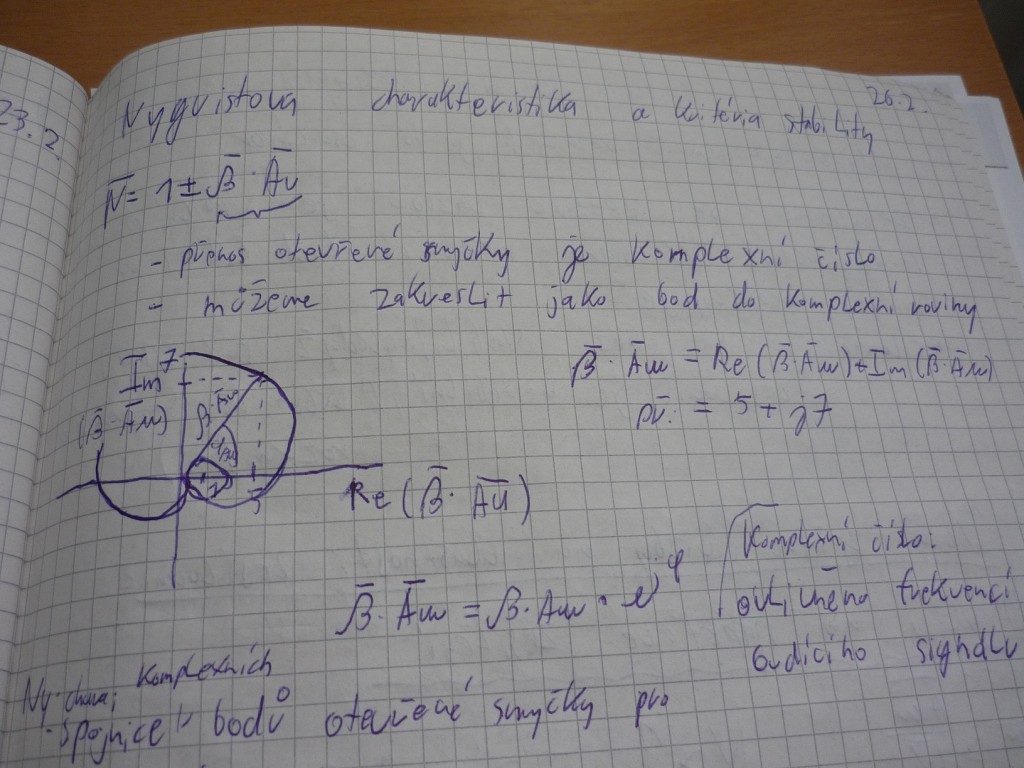 23.2
26.2.
Nyqvistova charakteristika a kritéria stability
N̅ = 1 ± β̅ · A̅u
- přenos otevřené smyčky je komplexní číslo
- můžeme zakreslit jako bod do komplexní roviny
Im 7
(β̅ · A̅u)
β · Au
5
Re (β̅ · A̅u)
β̅ · A̅u = Re (β̅ · A̅u) + Im (β̅ · A̅u)
př. = 5 + j7
β̅ · A̅u = β · Au · e^jφ
Komplexní číslo:
ovlivněno frekvencí
budícího signálu
Ny. char:
- spojnice komplexních bodů otevřené smyčky pro